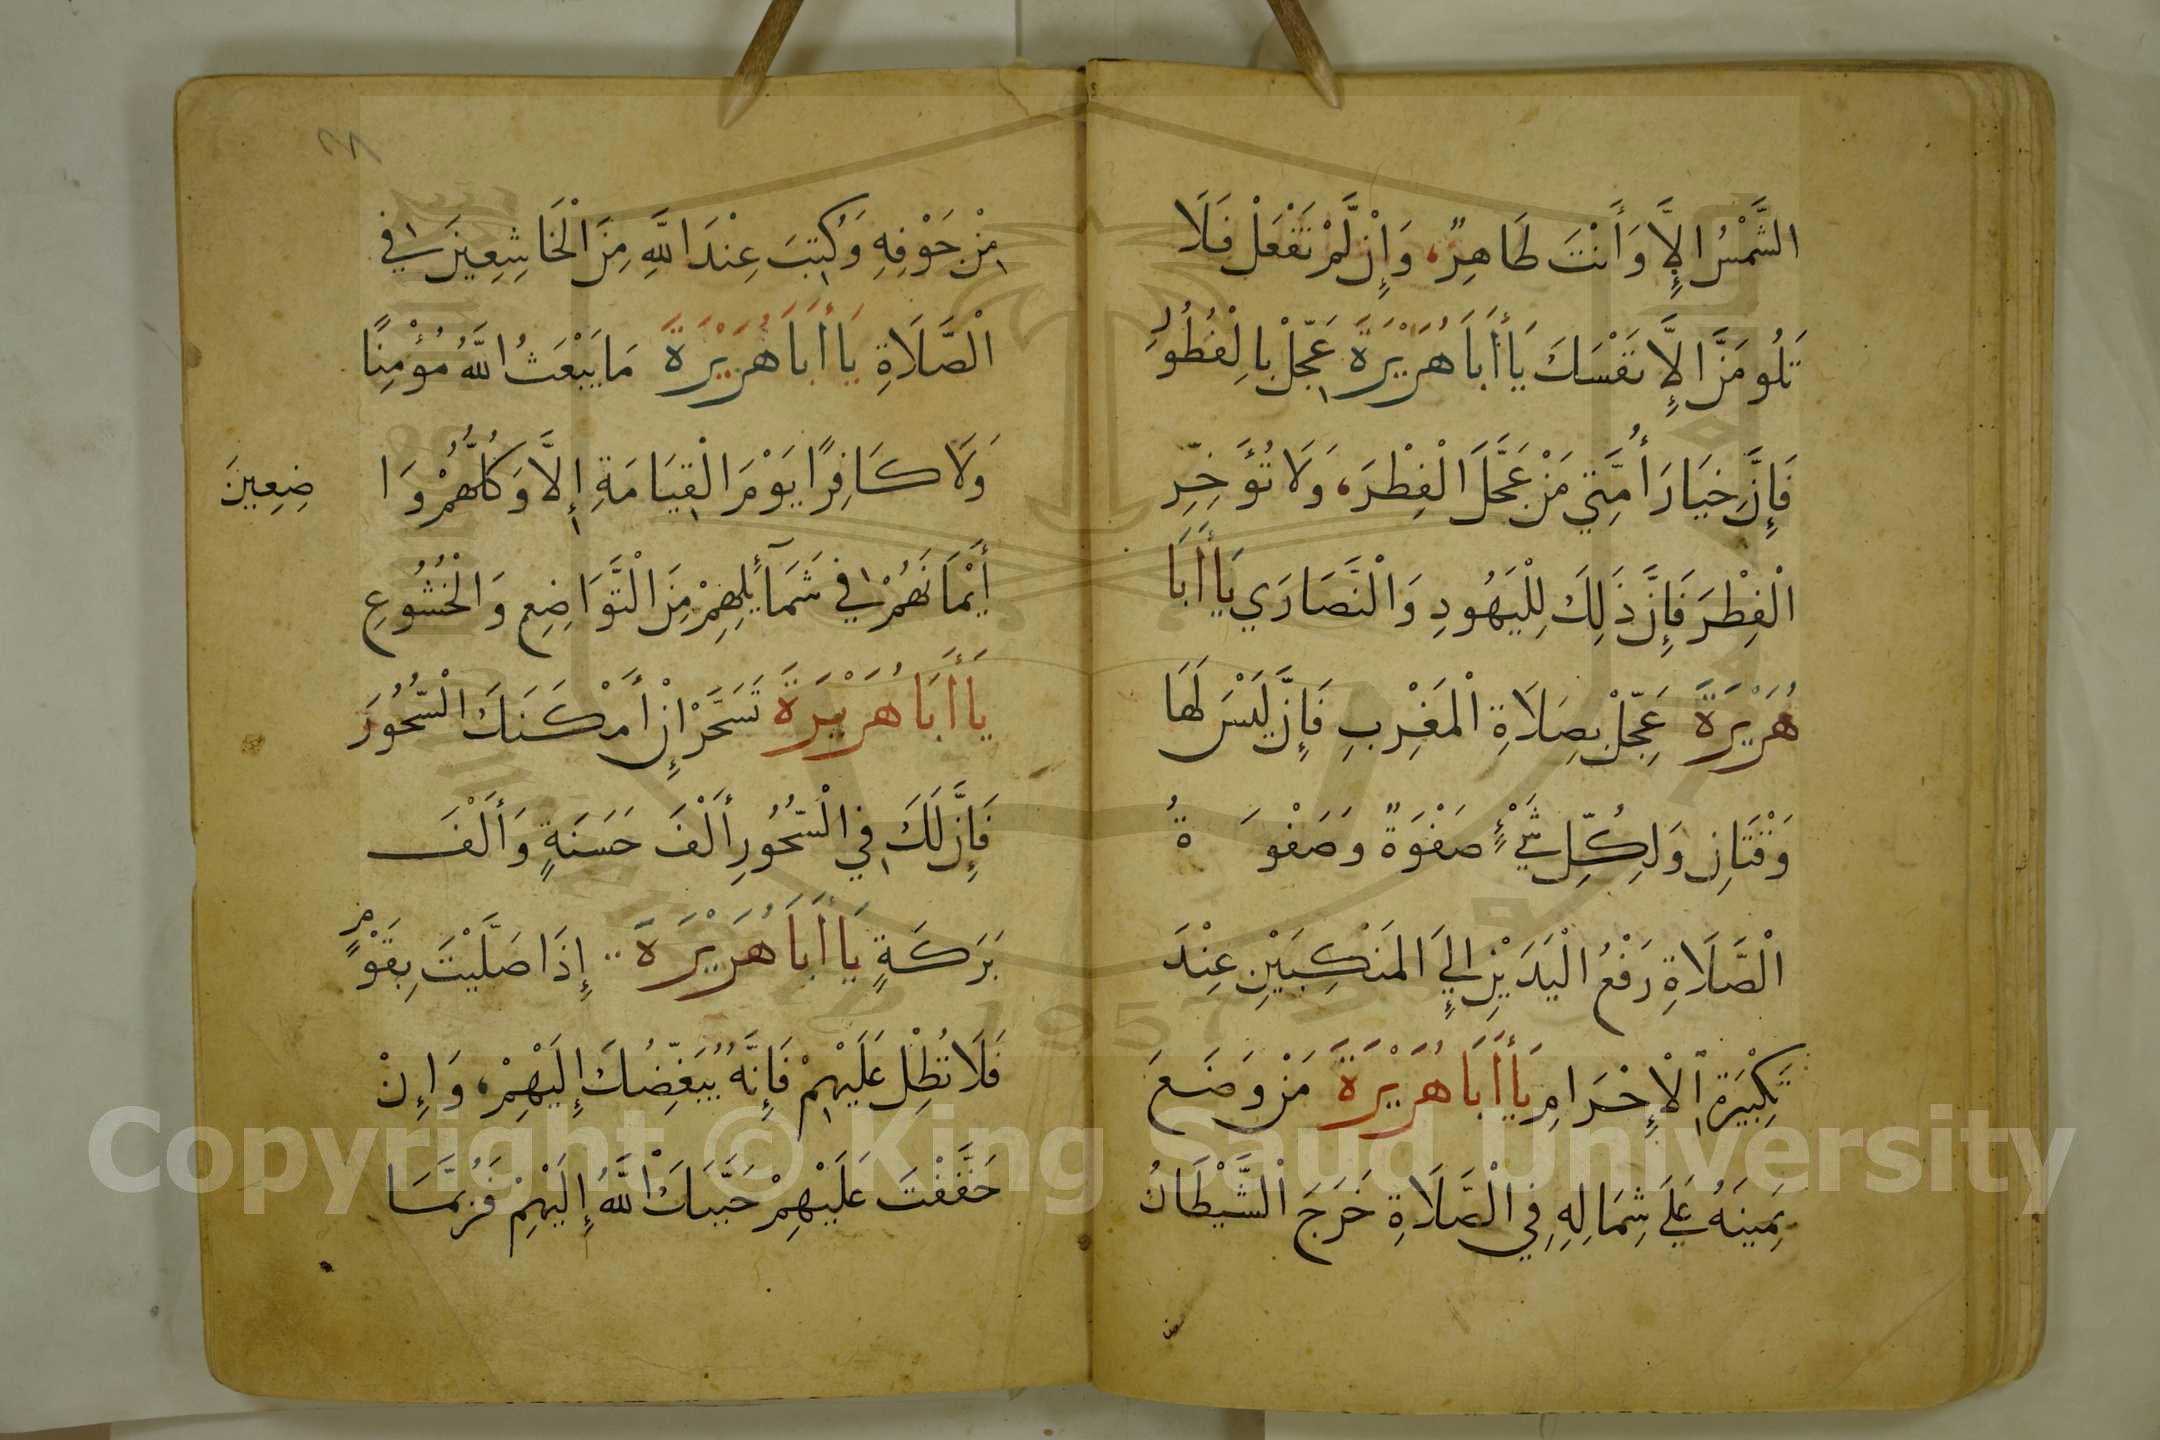 الشَّمْسُ إِلَّا وَأَنْتَ طَاهِرٌ، وَإِنْ لَّمْ تَفْعَلْ فَلَا
تَلُومَنَّ إِلَّا نَفْسَكَ يَا أَبَا هُرَيْرَةَ عَجِّلْ بِالْفُطُورِ
فَإِنَّ خِيَارَ أُمَّتِي مَنْ عَجَّلَ الْفِطْرَ، وَلَا تُؤَخِّرِ
الْفِطْرَ فَإِنَّ ذَلِكَ لِلْيَهُودِ وَالْنَّصَارَي يَا أَبَا
هُرَيْرَةَ عَجِّلْ بِصِلَاةِ الْمَغِرْبِ فَإِنَّ لَيْسَ لَهَا
وَقْتَانِ وَلِكُلِّ شَيْءٍ صَفْوَةٌ وَصَفْوَةُ
الْصَّلَاةِ رَفْعُ الْيَدَيْنِ إِلَي الْمَنْكِبَيْنِ عِنْدَ
تَكِبْيَرةِ الْإِحْرَامِ يَا أَبَا هُرَيْرَةَ مَنْ وَضَعَ
يَمِينَهُ عَلَي شِمَالِهِ فِي الْصَّلَاةِ خَرَجَ الْشَّيْطَانُ
مِنْ جَوْفِهِ وَكُتِبَ عِنْدَ اللَّهِ مِنَ الْخَاشِعِينَ فِي
الْصَّلَاةِ يَا أَبَا هُرَيْرَةَ مَا يَبْعَثُ اللَّهُ مُؤْمِنًا
وَلَا كَافِرًا يَوْمَ الْقِيَامَةِ إِلَّا وَكُلُّهُمْ وَا
ضِعِينَ
أَيْمَانَهُمْ فِي شَمَآئِلِهِمْ مِنَ الْتَّوَاضِعِ وَالْخُشُوعِ
يَا أَبَا هُرَيْرَةَ تَسَحَّرْ إِنْ أَمْكَنَكَ الْسُّحُورَ
فَإِنَّ لَكَ فِي الْسُّحُورِ أَلْفَ حَسَنَةٍ وَأَلْفَ
بَرَكَةٍ يَا أَبَا هُرَيْرَةَ إِذَا صَلَّيْتَ بِقَوْمٍ
فَلَا تُطِلْ عَلَيْهِمْ فَإِنَّهُ يُبَغِّضُكَ إِلَيْهِمْ، وَإِنْ
خَفَّفْتَ عَلَيْهِمْ حَبَّبَكَ اللَّهُ إِلَيْهِمْ فَرُبَّمَا
Copyright © King Saud University
1957